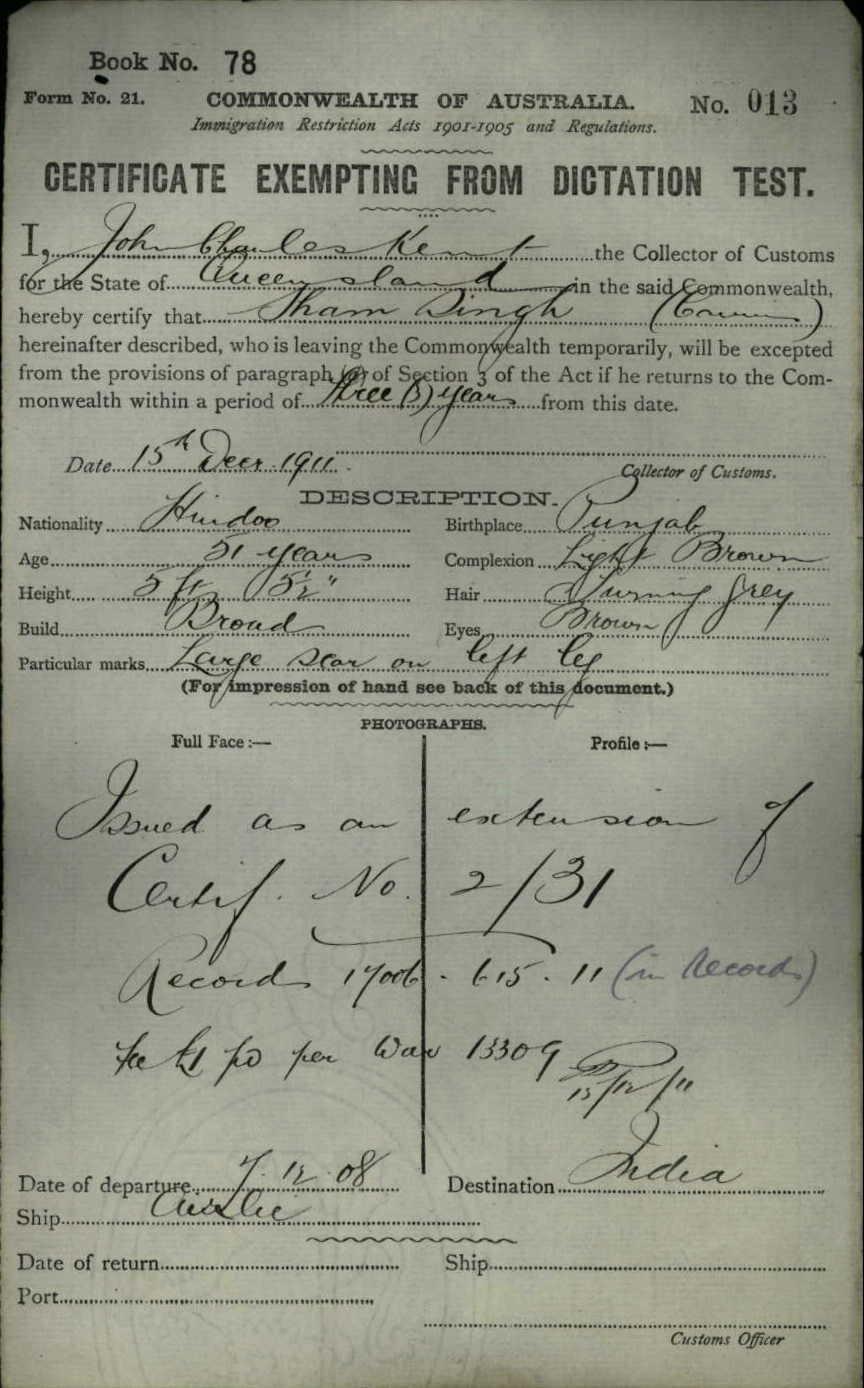 Book No. 78
Form No. 21. COMMONWEALTH OF AUSTRALIA. No. 013
Immigration Restriction Acts 1901-1905 and Regulations.
CERTIFICATE EXEMPTING FROM DICTATION TEST.
I, John Charles Kent the Collector of Customs
for the State of Queensland in the said Commonwealth,
hereby certify that Tham Singh
hereinafter described, who is leaving the Commonwealth temporarily, will be excepted
from the provisions of paragraph (a) of Section 3 of the Act if he returns to the Com-
monwealth within a period of three (3) years from this date.
Date 15th Decr. 1911.
Collector of Customs.
DESCRIPTION.
Nationality Hindoo Birthplace Punjab
Age 51 years Complexion Light Brown
Height 5 ft 5½" Hair Turning grey
Build Broad Eyes Brown
Particular marks Large scar on left leg
(For impression of hand see back of this document.)
PHOTOGRAPHS.
Full Face :— Profile :—
Issued as an extension of
Certif. No. 2/31
Records 17006 - 615. 11 (in Records)
fee £1 pd per War 13309
15/12/11
Date of departure 7. 12 08 Destination India
Ship
Date of return Ship
Port
Customs Officer